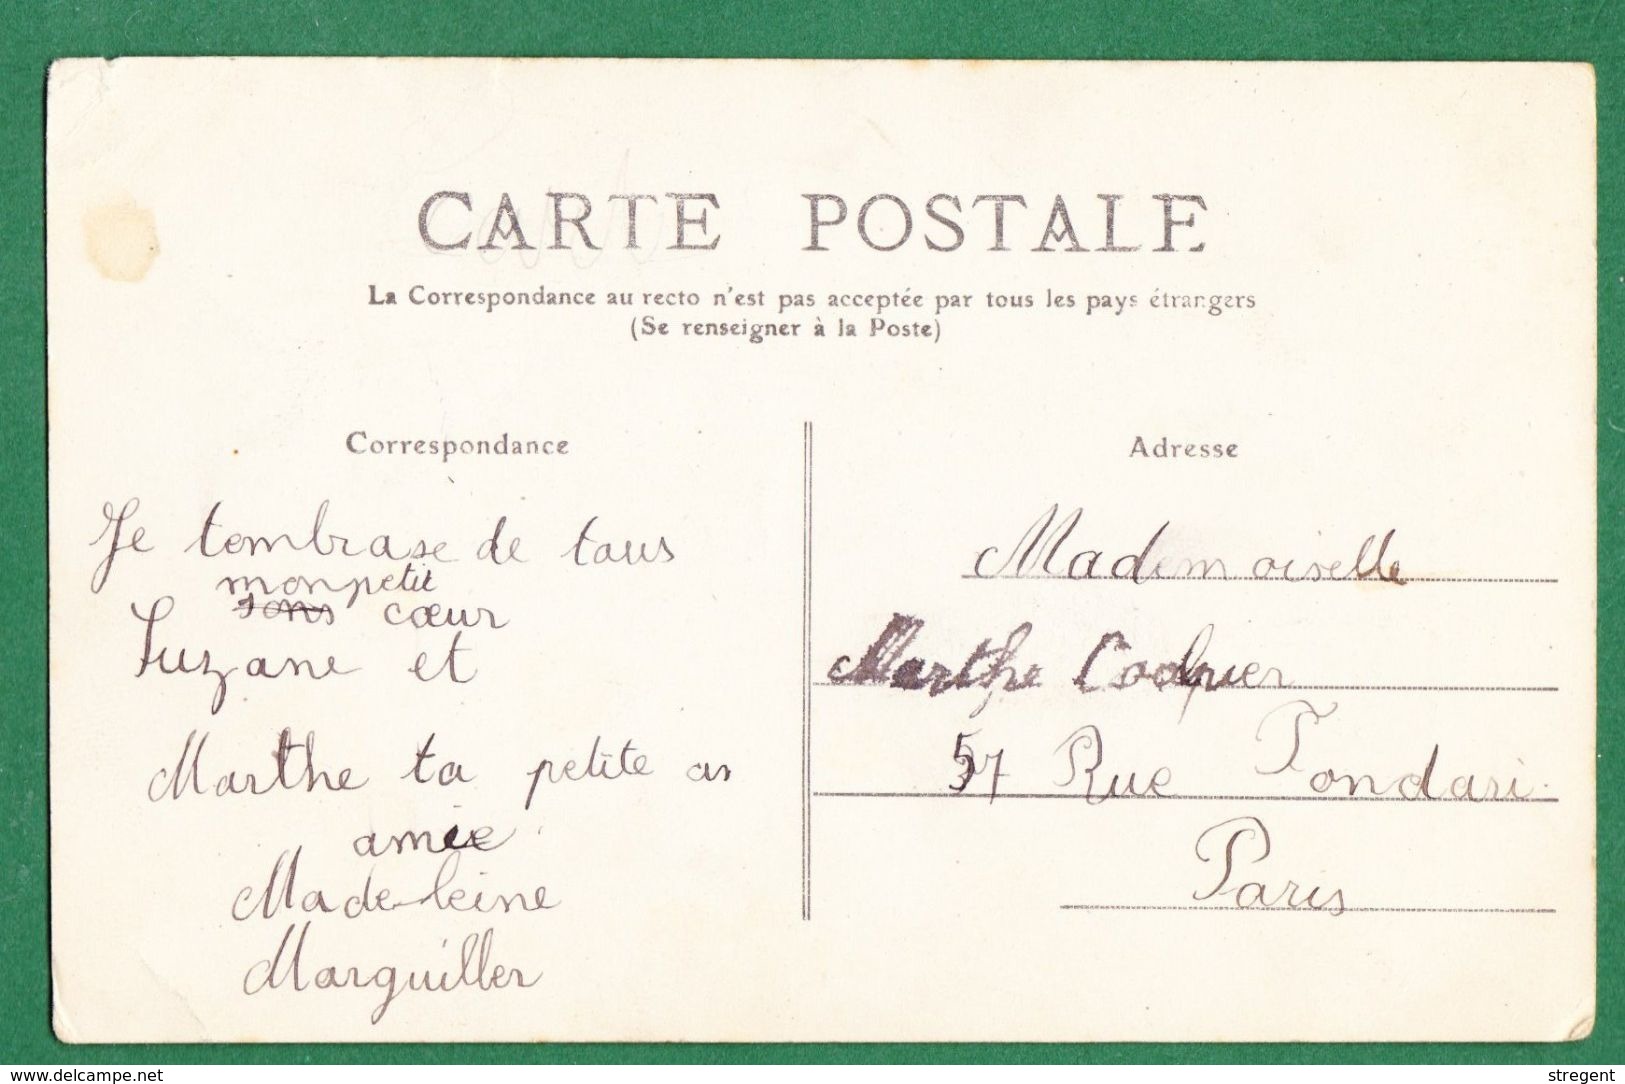 CARTE POSTALE
La Correspondance au recto n'est pas acceptée par tous les pays étrangers
(Se renseigner à la Poste)
Correspondance
Je tembrase de taus
mon petit
cœur
Suzane et
Marthe ta petite
amie
Madeleine
Marguiller
Adresse
Mademoiselle
Marthe
57 Rue Fondari
Paris
www.delcampe.net
stregent